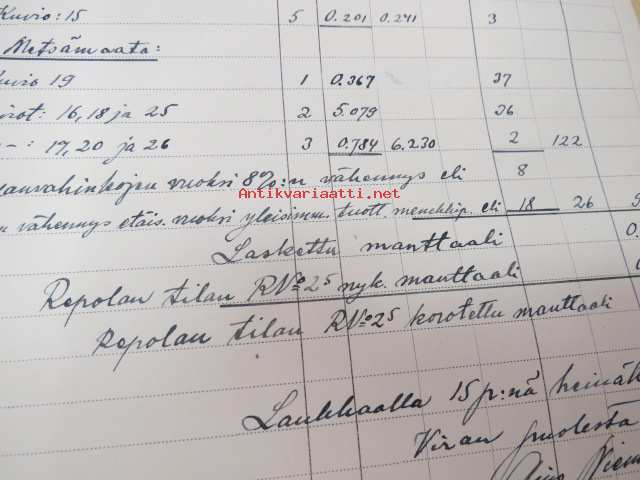 Kuvio: 15 5 0.201 0.241 3
Metsämaata:
Kuvio 19 1 0.367 37
viot: 16, 18 ja 25 2 5.079 36
-"- : 17, 20 ja 26 3 0.784 6.230 2 122
vuoksi 8%:n vähennys eli 8
Antikvariaatti.net
vähennys etäis. vuoksi yleisimm. tuott. eli 18 26
Laskettu manttaali 0.
Repolan tilan RNo 25 nyk. manttaali
Repolan tilan RNo 25 korotettu manttaali
Laukkaalla 15 p:nä heinäk
Viran puolesta